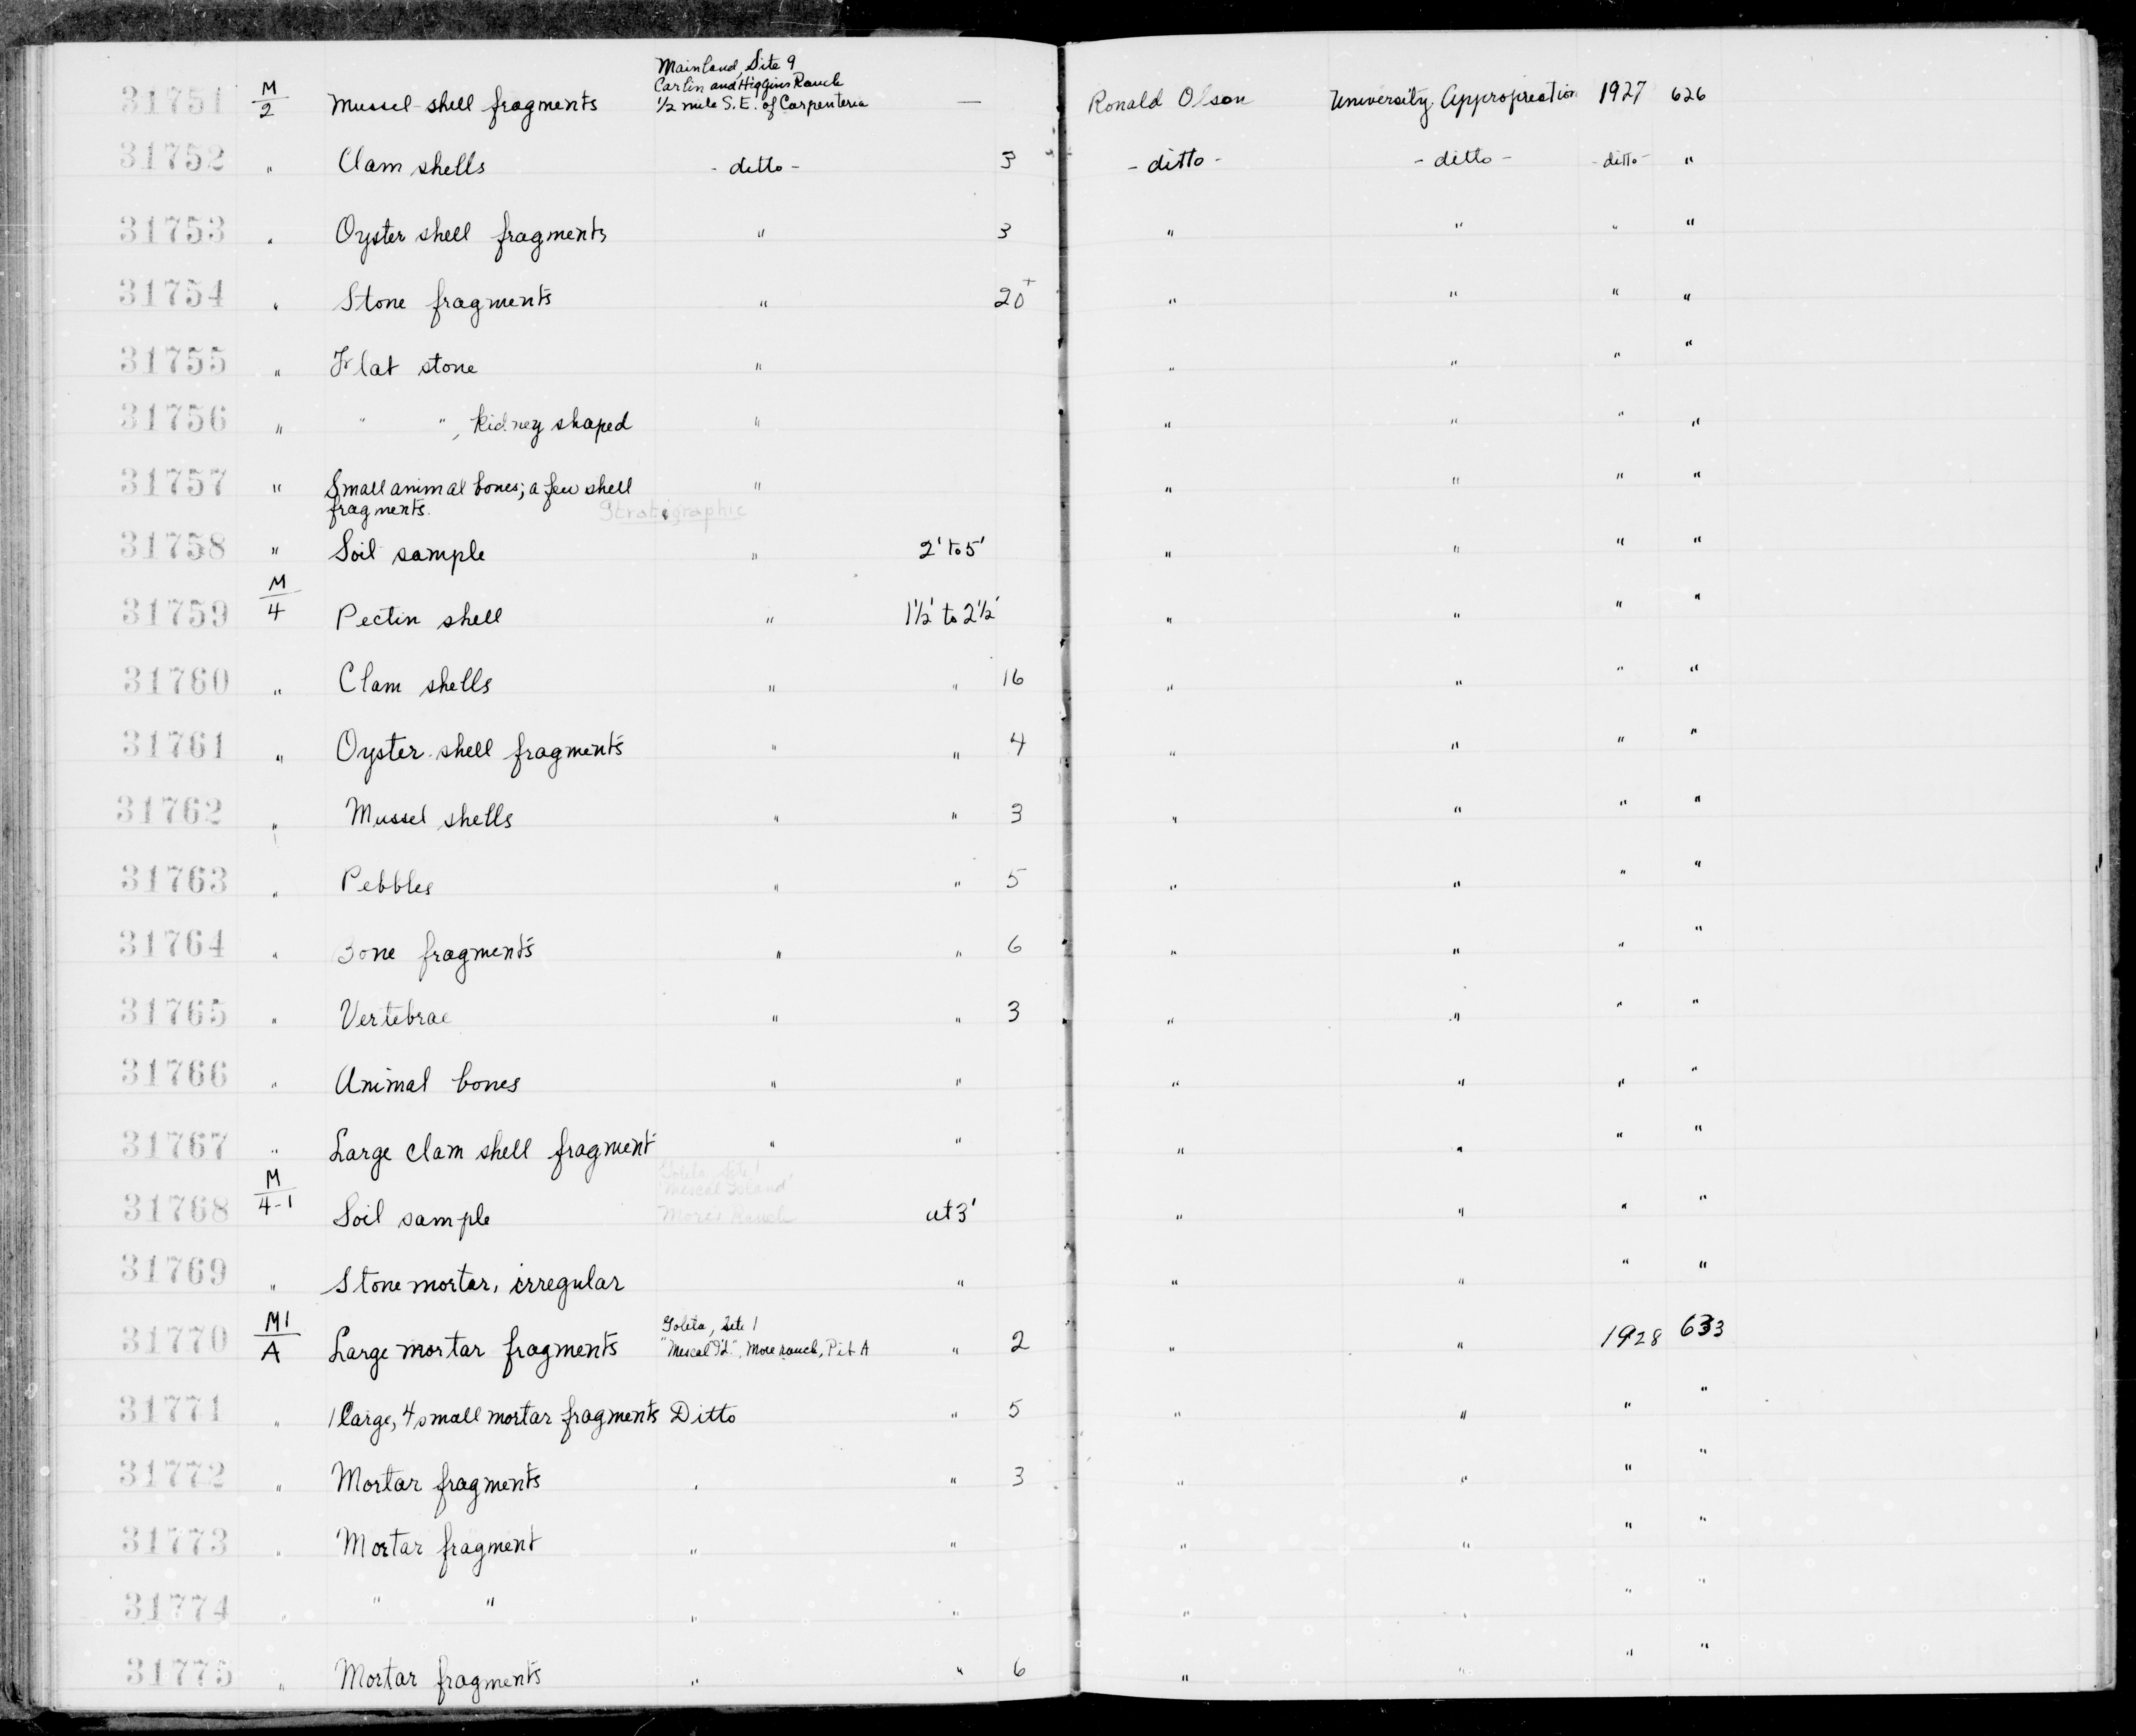 Mainland, Site 9
Carlin and Higgins Ranch
31751 M/2 Mussel shell fragments 1/2 mile S.E. of Carpenteria — Ronald Olson University Appropriation 1927 626
31752 " Clam shells - ditto - 3 - ditto - - ditto - - ditto - "
31753 " Oyster shell fragments " 3 " " " "
31754 " Stone fragments " 20+ " " " "
31755 " Flat stone " " " " "
31756 " " ", kidney shaped " " " " "
31757 " Small animal bones; a few shell " " " " "
fragments. Stratigraphic
31758 " Soil sample " 2' to 5' " " " "
31759 M/4 Pectin shell " 1 1/2' to 2 1/2' " " " "
31760 " Clam shells " " 16 " " " "
31761 " Oyster shell fragments " " 4 " " " "
31762 " Mussel shells " " 3 " " " "
31763 " Pebbles " " 5 " " " "
31764 " Bone fragments " " 6 " " " "
31765 " Vertebrae " " 3 " " " "
31766 " Animal bones " " " " " "
31767 " Large clam shell fragment " " " " " "
Goleta, Site 1
"Mescal Island"
31768 M/4-1 Soil sample More's Ranch at 3' " " " "
31769 " Stone mortar, irregular " " " " "
Goleta, Site 1
31770 M1/A Large mortar fragments "Mescal Id.", More Ranch, Pit A " 2 " " 1928 633
31771 " 1 large, 4 small mortar fragments Ditto " 5 " " " "
31772 " Mortar fragments " " 3 " " " "
31773 " Mortar fragment " " " " " "
31774 " " " " " " " " "
31775 " Mortar fragments " " 6 " " " "